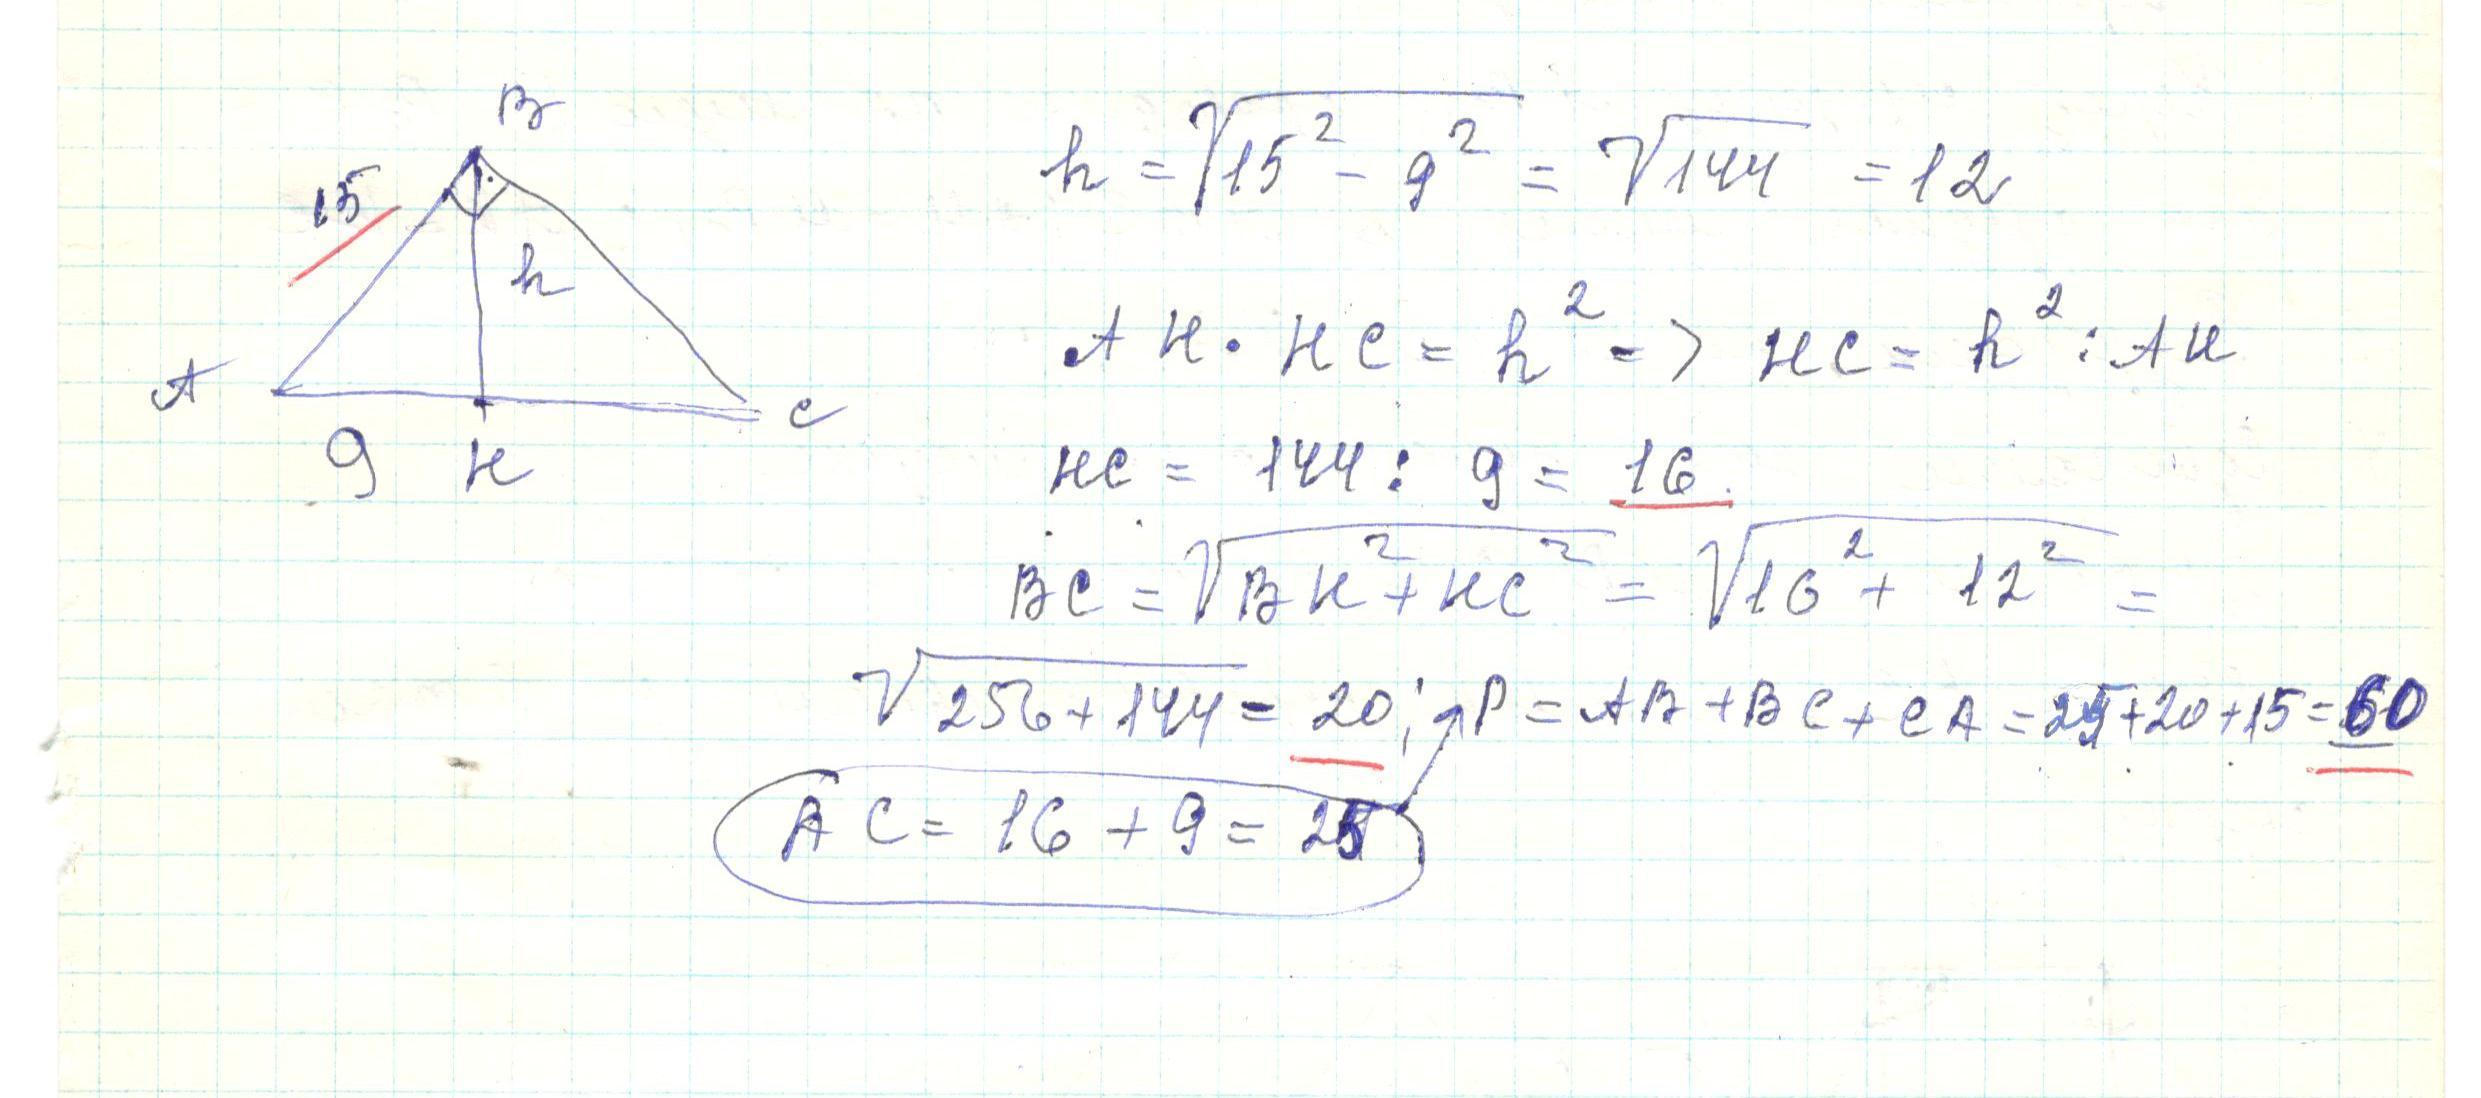 B
15
h
A
C
9 H
h = √15² - 9² = √144 = 12
AH · HC = h² => HC = h² : AH
HC = 144 : 9 = 16
BC = √BH² + HC² = √16² + 12² =
√256 + 144 = 20; P = AB + BC + CA = 25 + 20 + 15 = 60
AC = 16 + 9 = 25